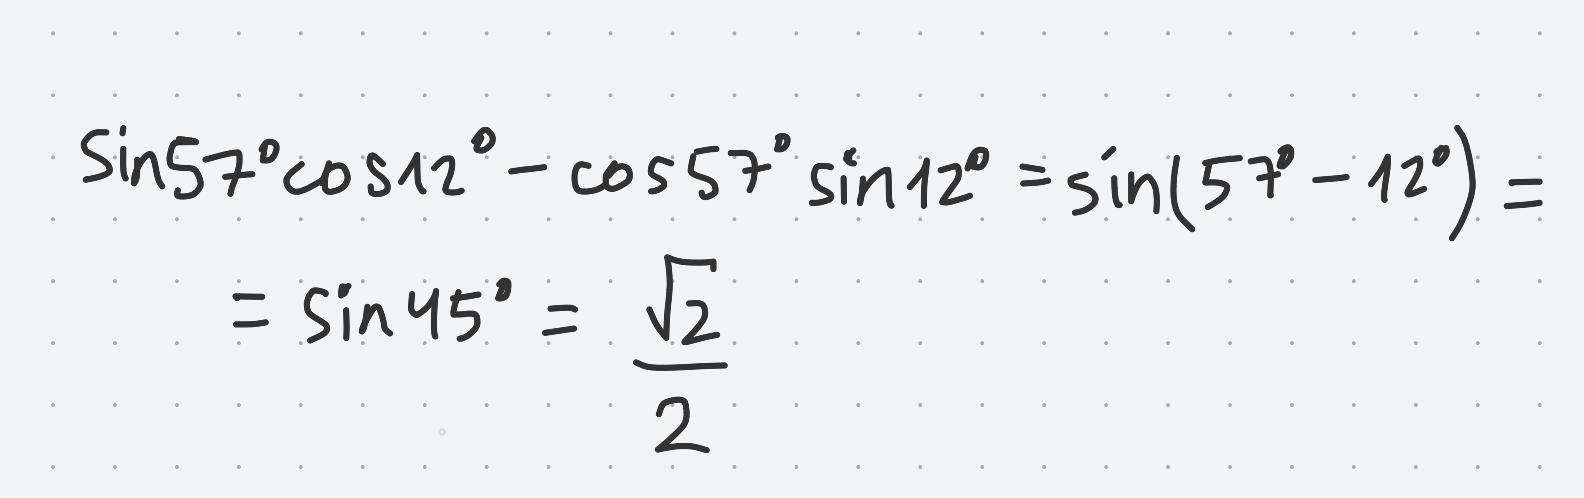 Sin57°cos12° - cos57° sin12° = sin(57° - 12°) =
= sin45° = √2/2